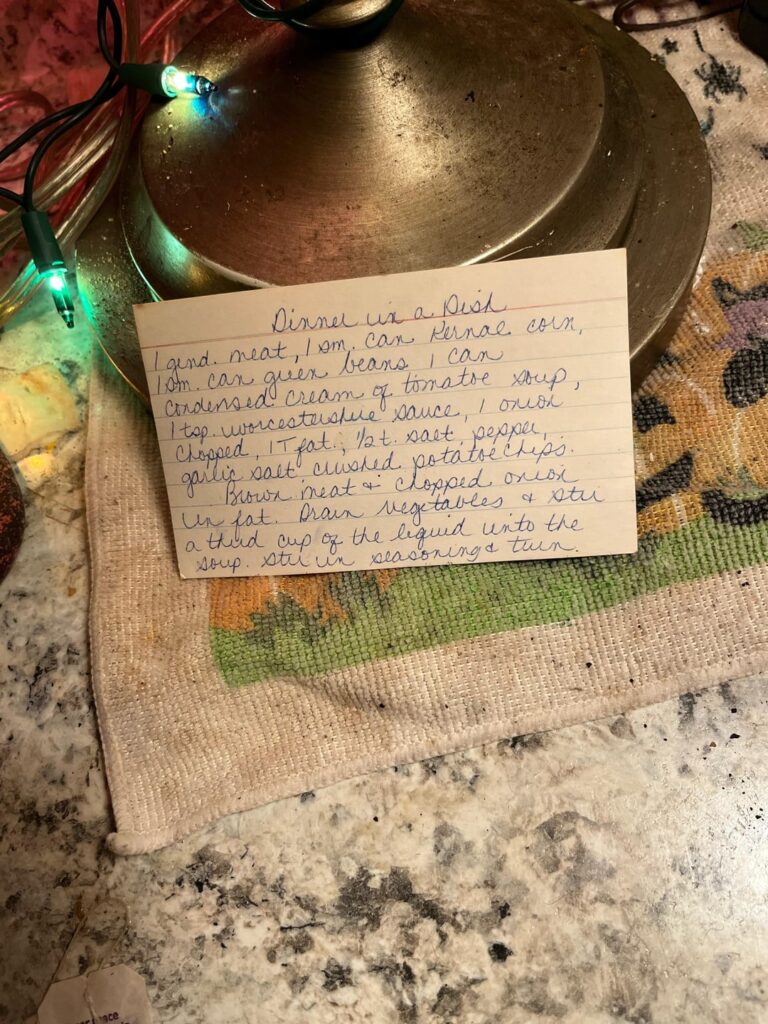 Dinner in a Dish
1 grnd. meat, 1 sm. can Kernal corn,
1 sm. can green beans 1 can
condensed cream of tomatoe soup,
1 tsp. worcestershire sauce, 1 onion
chopped, 1 T fat., 1/2 t. salt, pepper,
garlic salt, crushed potatoe chips.
Brown meat & chopped onion
in fat. Drain vegetables & stir
a third cup of the liquid into the
soup. Stir in seasoning & turn.